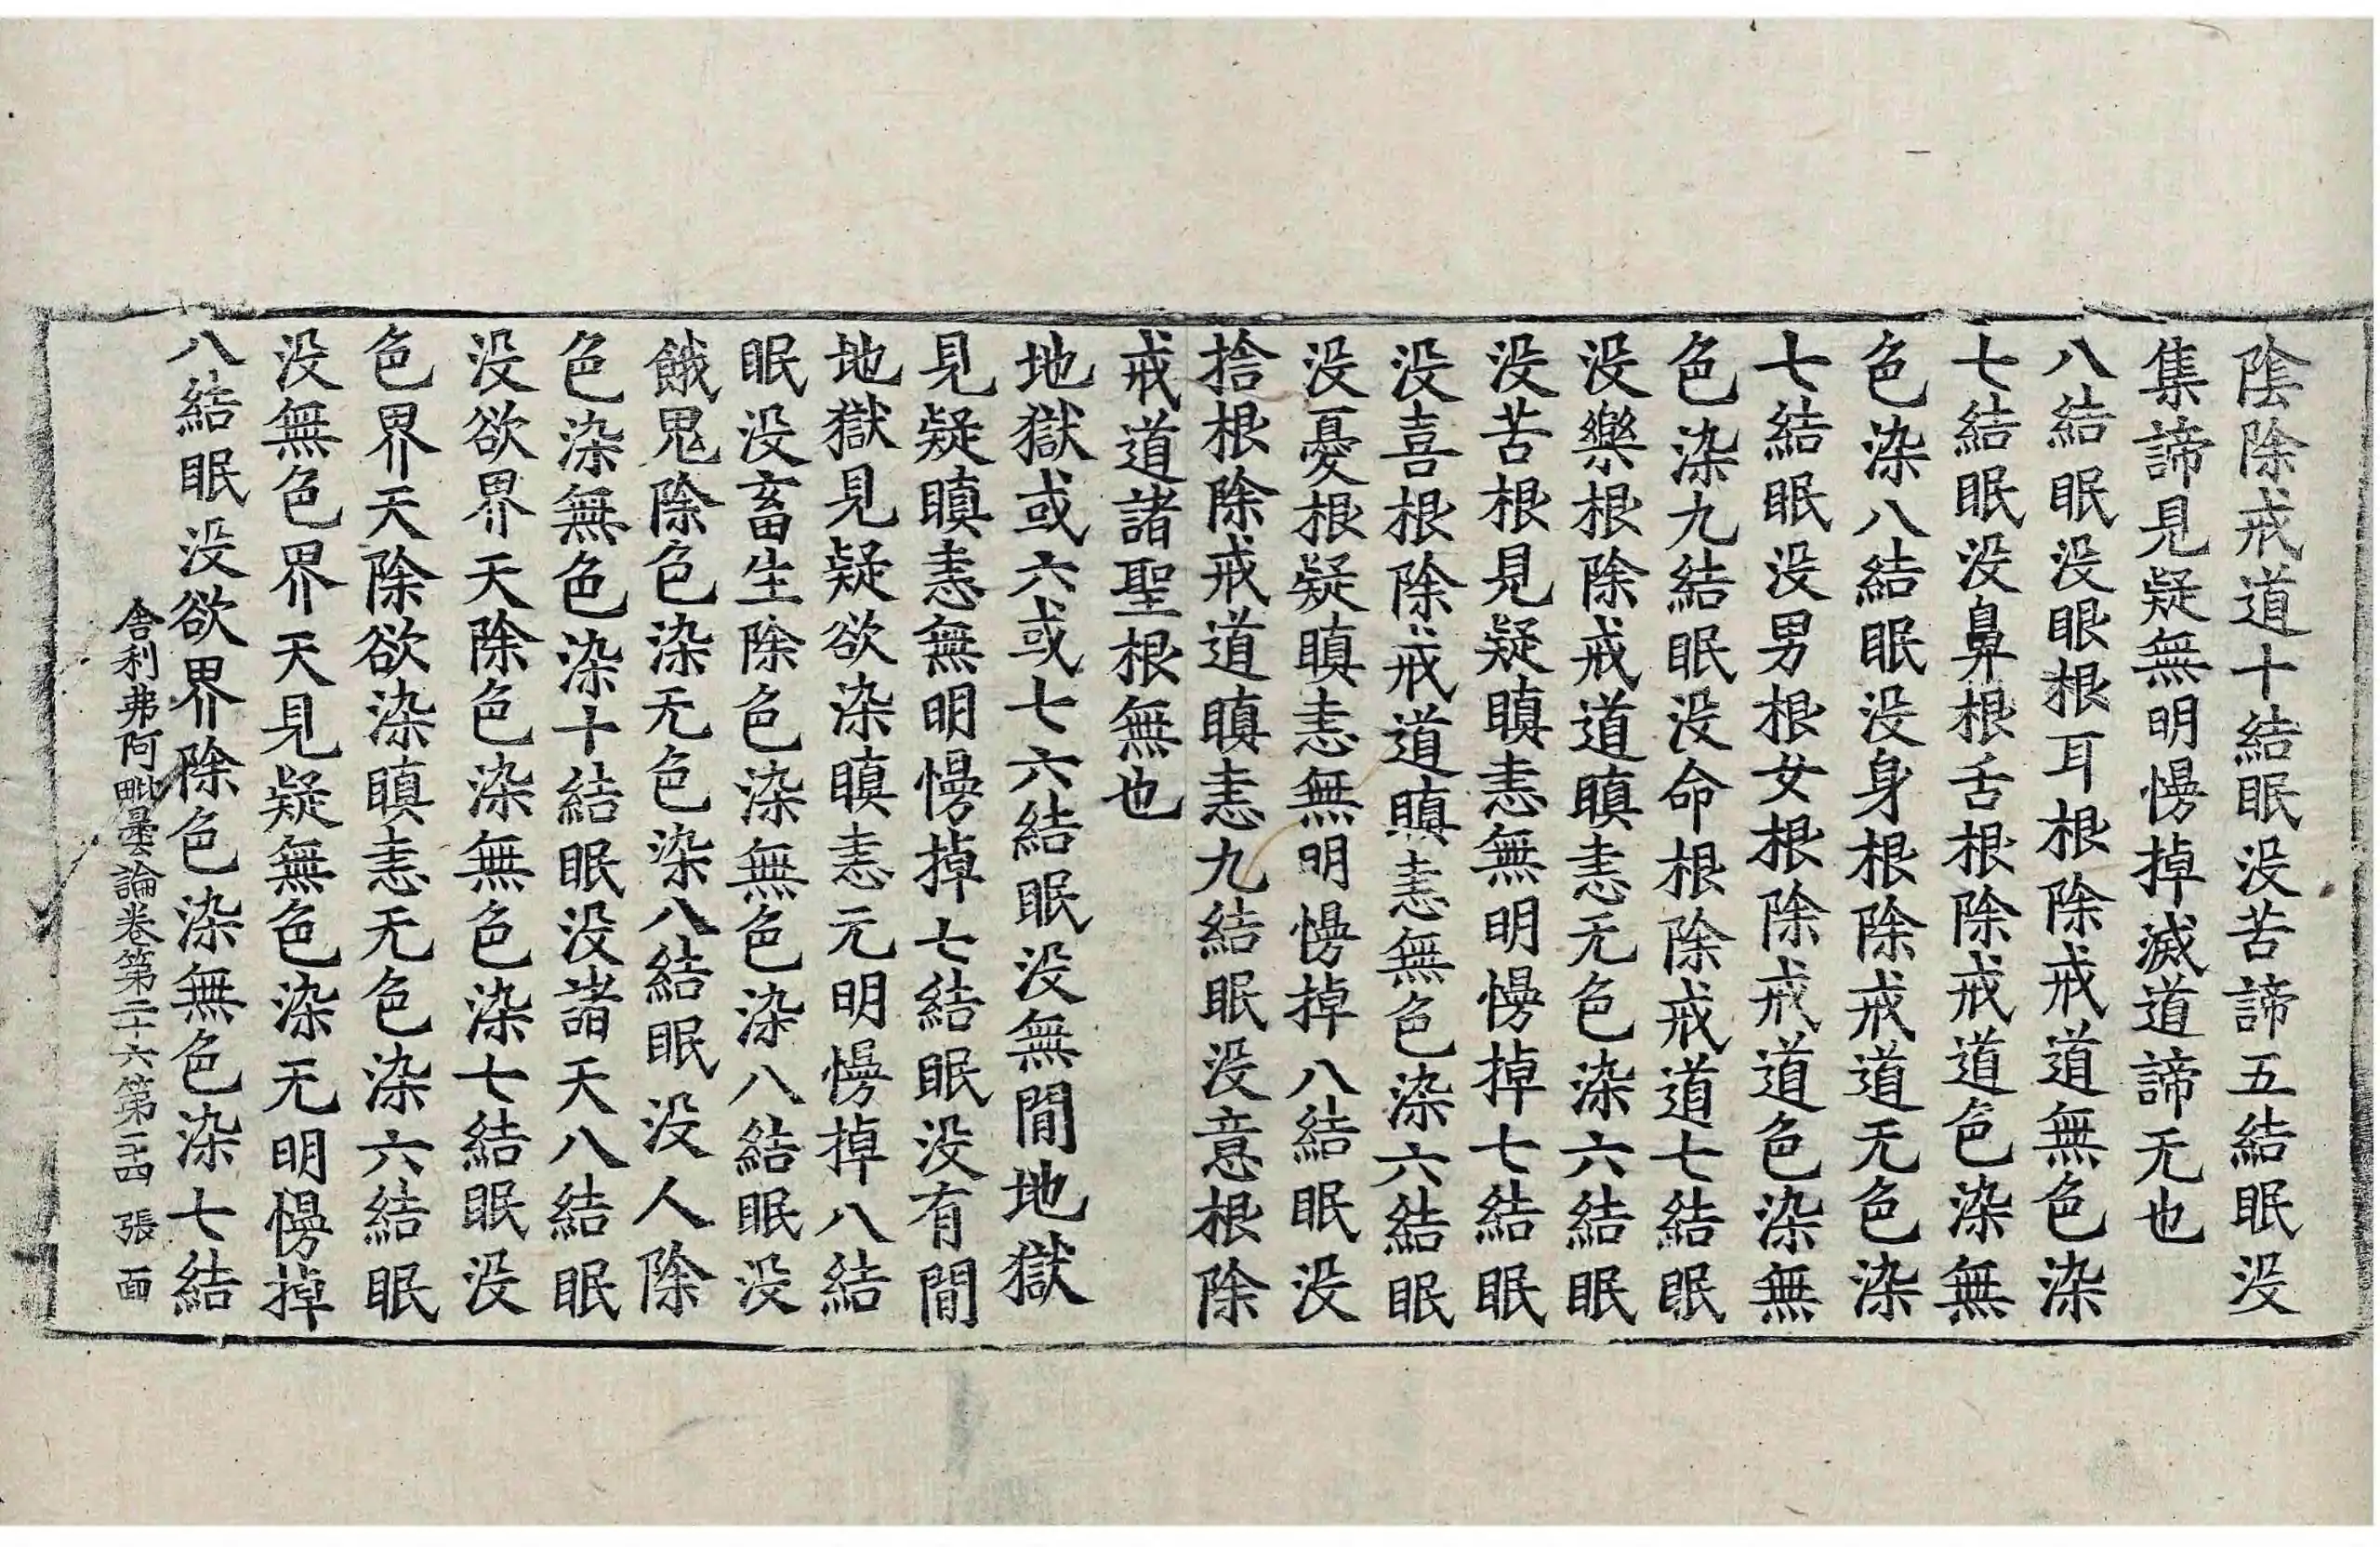 陰除戒道十結眠没苦諦五結眠没
集諦見疑無明慢掉滅道諦无也
八結眠没眼根耳根除戒道無色染
七結眠没鼻根舌根除戒道色染無
色染八結眠没身根除戒道无色染
七結眠没男根女根除戒道色染無
色染九結眠没命根除戒道七結眠
没樂根除戒道瞋恚无色染六結眠
没苦根見疑瞋恚無明慢掉七結眠
没喜根除戒道瞋恚無色染六結眠
没憂根疑瞋恚無明慢掉八結眠没
捨根除戒道瞋恚九結眠没意根除
戒道諸聖根無也
地獄或六或七六結眠没無間地獄
見疑瞋恚無明慢掉七結眠没有間
地獄見疑欲染瞋恚无明慢掉八結
眠没畜生除色染無色染八結眠没
餓鬼除色染无色染八結眠没人除
色染無色染十結眠没諸天八結眠
没欲界天除色染無色染七結眠没
色界天除欲染瞋恚无色染六結眠
没無色界天見疑無色染无明慢掉
八結眠没欲界除色染無色染七結
舍利弗阿毗曇論卷第二十六第二十四 張 面